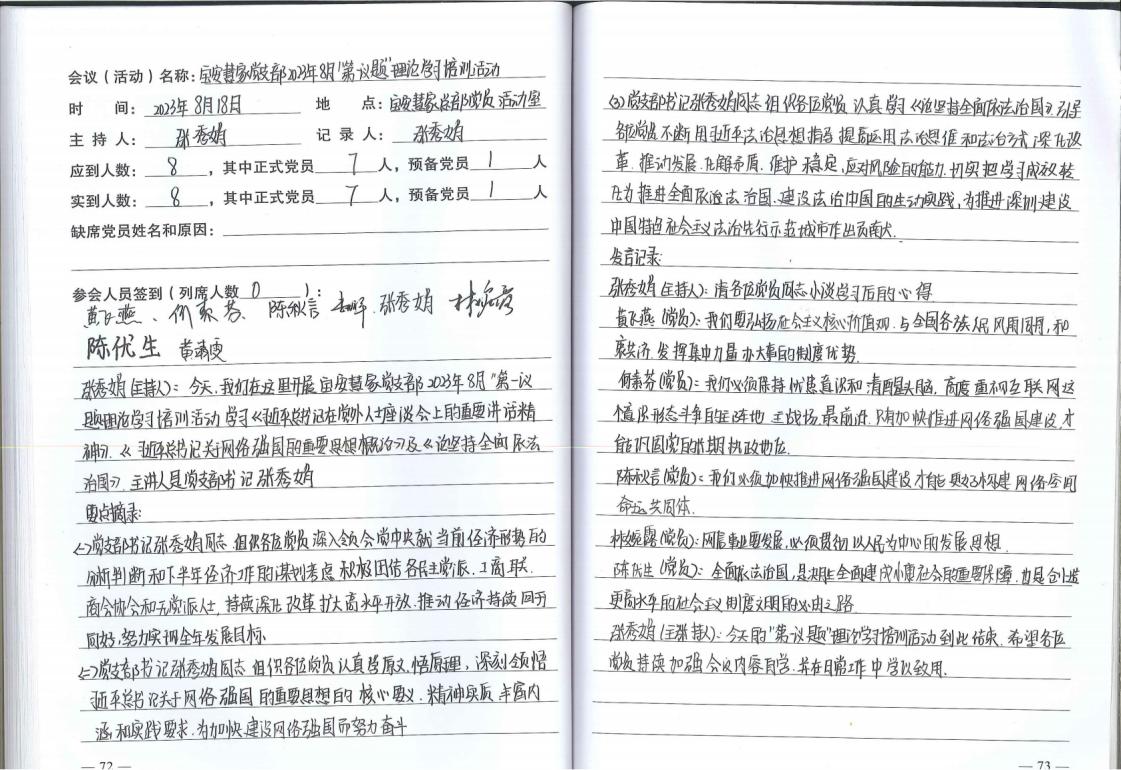 会议（活动）名称：宝安慧家党支部2023年8月"第一议题"理论学习培训活动
时 间：2023年8月18日 地 点：宝安慧家总部党员活动室
主 持 人：张秀娟 记 录 人：张秀娟
应到人数：8，其中正式党员7人，预备党员1人
实到人数：8，其中正式党员7人，预备党员1人
缺席党员姓名和原因：
参会人员签到（列席人数0）：
黄飞燕、何素芬、陈秋言 张秀娟 林婉露
陈优生 黄
张秀娟（主持人）：今天，我们在这里开展宝安慧家党支部2023年8月"第一议
题"理论学习培训活动 学习《习近平总书记在党外人士座谈会上的重要讲话精
神》、《习近平总书记关于网络强国的重要思想概论》及《论坚持全面依法
治国》，主讲人是党支部书记张秀娟
要点摘录：
(一)党支部书记张秀娟同志 组织各位党员 深入领会党中央就当前经济形势的
分析判断和下半年经济工作的谋划考虑 积极团结各民主党派、工商联、
商会协会和无党派人士，持续深化改革扩大高水平开放，推动经济持续回升
向好，努力实现全年发展目标。
(二)党支部书记张秀娟同志 组织各位党员认真学原文，悟原理，深刻领悟
习近平总书记关于网络强国的重要思想的核心要义、精神实质、丰富内
涵和实践要求，为加快建设网络强国而努力奋斗
— 72 —
(三)党支部书记张秀娟同志 组织各位党员 认真学习《论坚持全面依法治国》，引导
各位党员不断用习近平法治思想指导 提高运用法治思维和法治方式深化改
革、推动发展、化解矛盾、维护稳定、应对风险的能力，切实把学习成效转
化为推进全面依法治国、建设法治中国的生动实践，为推进深圳建设
中国特色社会主义法治先行示范城市作出贡献。
发言记录：
张秀娟（主持人）：请各位党员同志小谈学习后的心得
黄飞燕（党员）：我们要弘扬社会主义核心价值观，与全国各族人民风雨同舟，和
衷共济，发挥集中力量办大事的制度优势。
何素芬（党员）：我们必须保持忧患意识和清醒头脑，高度重视互联网这
个意识形态斗争的主阵地、主战场、最前沿，只有加快推进网络强国建设，才
能巩固党的长期执政地位。
陈秋言（党员）：我们必须加快推进网络强国建设才能更好构建网络空间
命运共同体。
林婉露（党员）：网信事业要发展，必须贯彻以人民为中心的发展思想
陈优生（党员）：全面依法治国，是决胜全面建成小康社会的重要保障，也是创造
更高水平的社会主义制度文明的必由之路
张秀娟（主持人）：今天的"第一议题"理论学习培训活动到此结束，希望各位
党员持续加强会议内容自学，并在日常工作中学以致用。
— 73 —